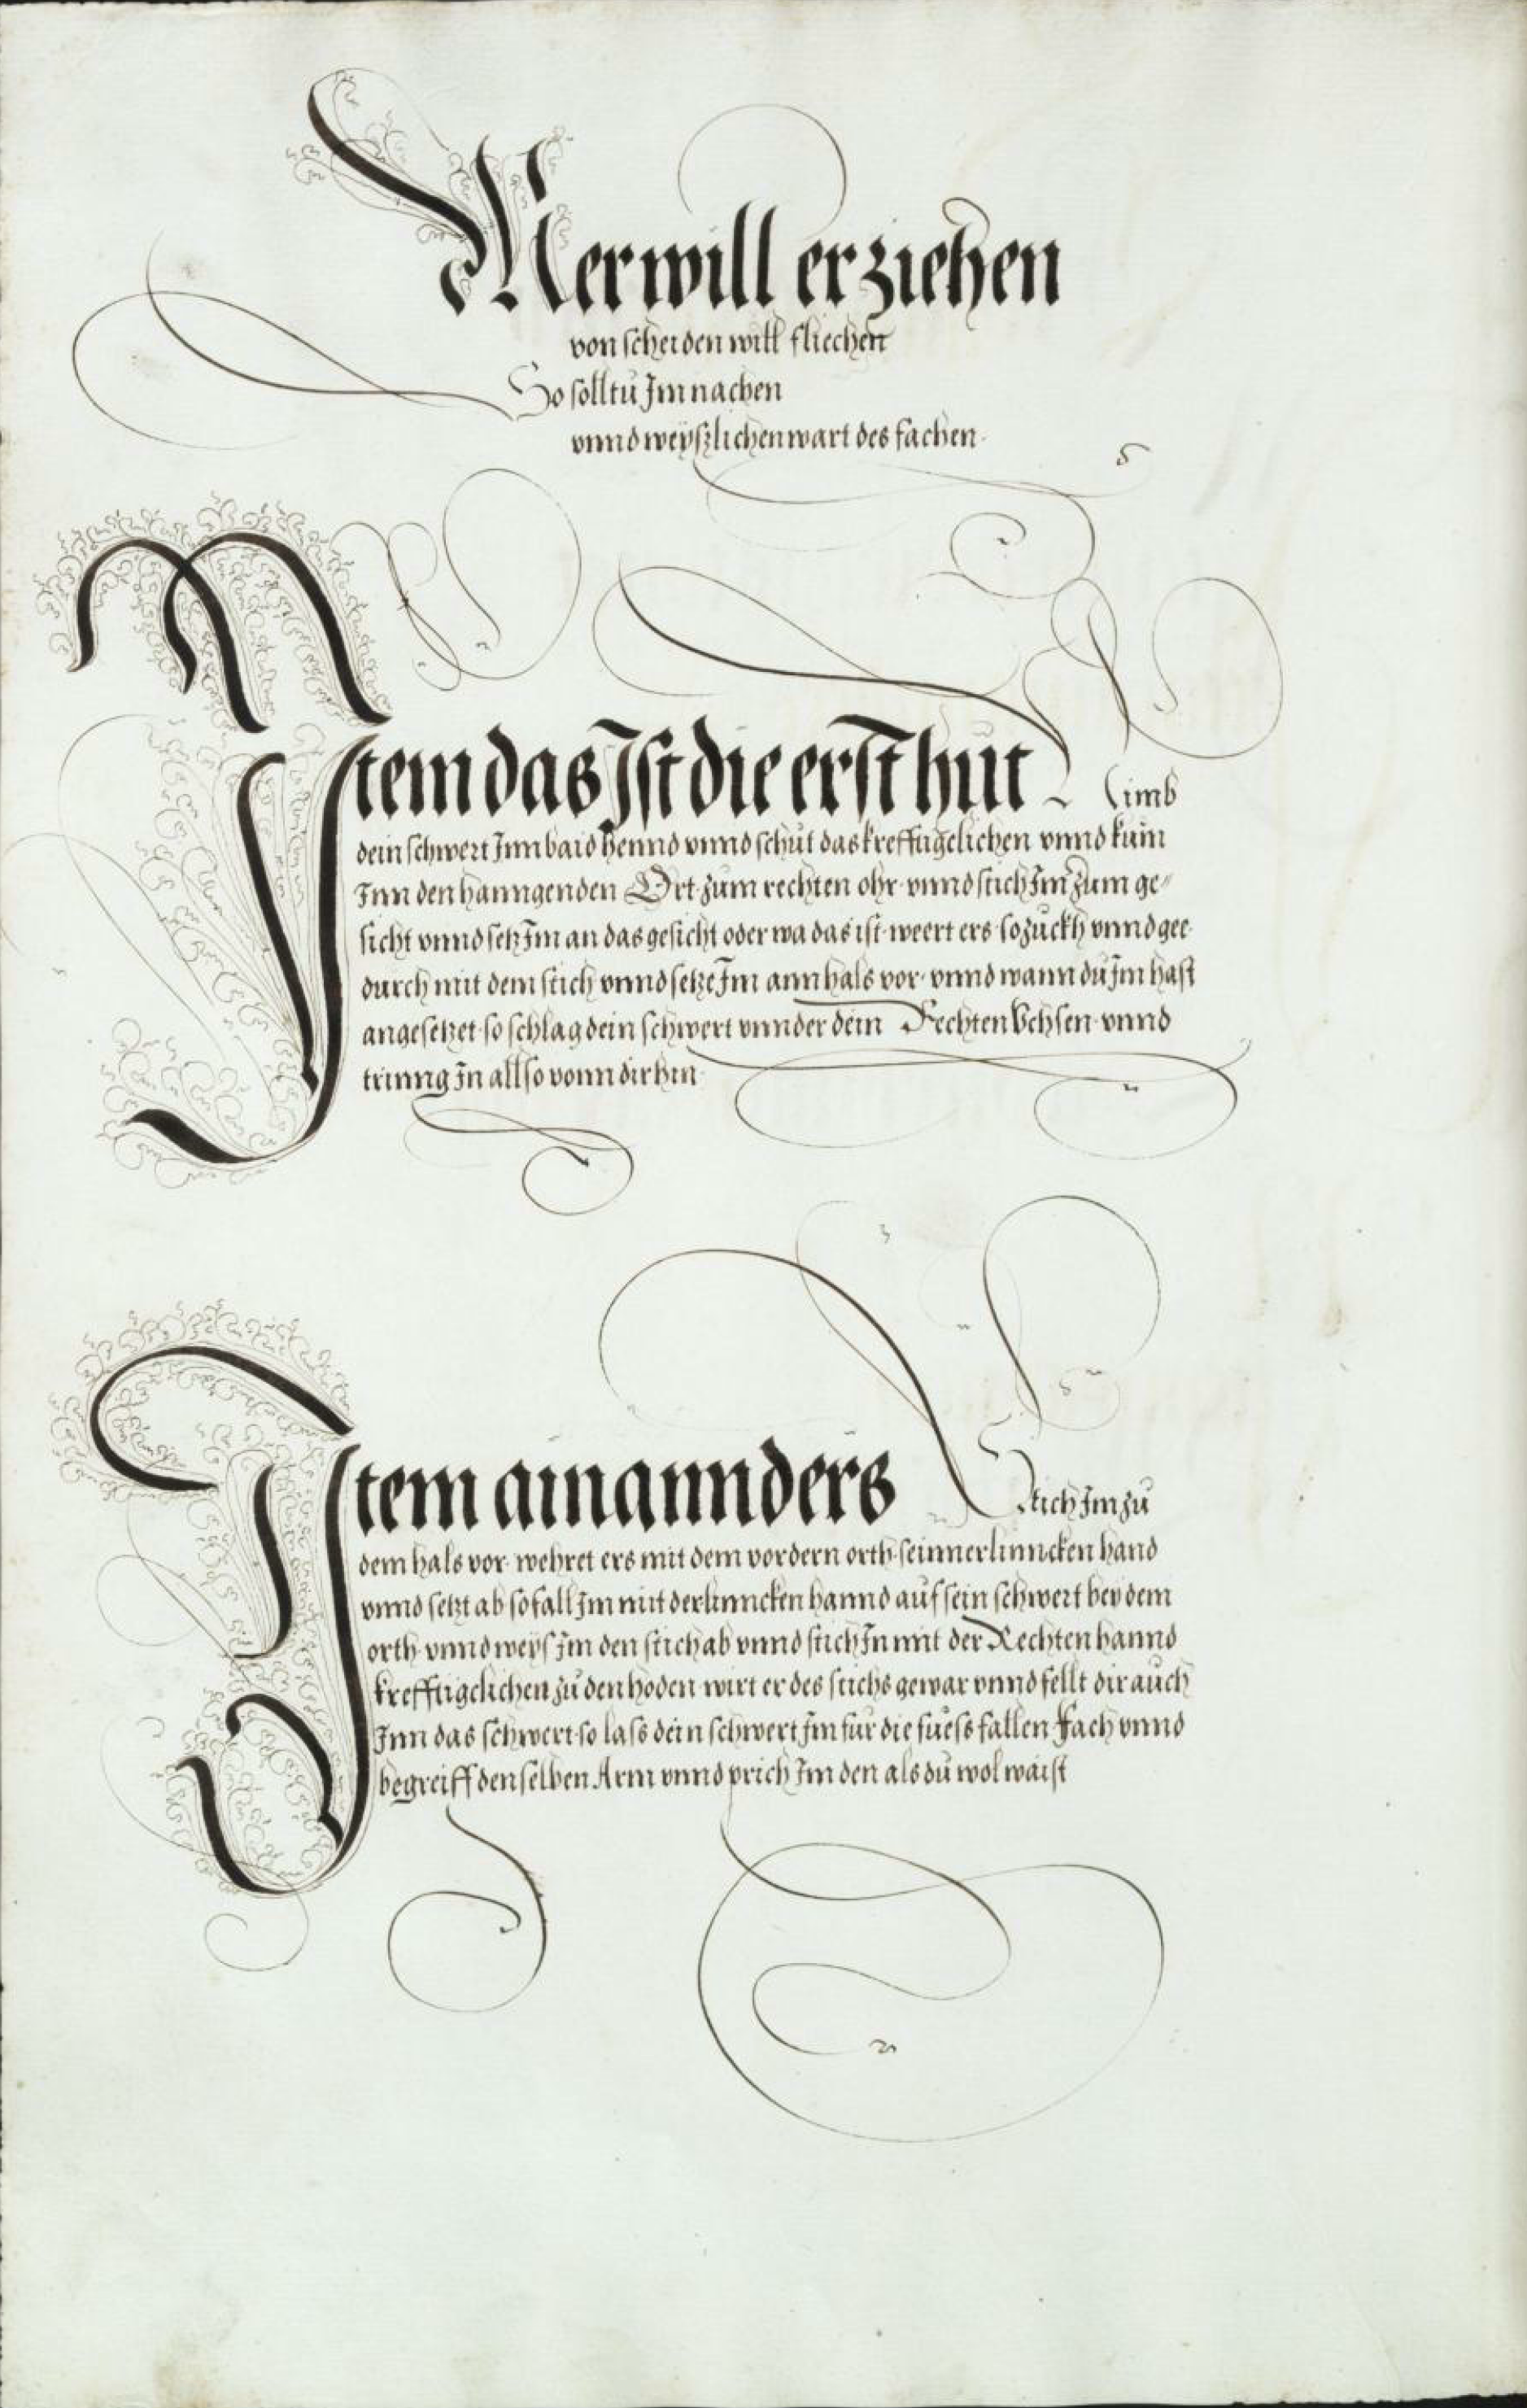 Mer will er ziehen
von scheiden will fliechen
So solltu Im nachen
vnnd weyszlichen wart des fachen
Item das Ist die erst hut Nimb
dein schwert Inn baid hennd vnnd schut das kreffтigelichen vnnd kum
Inn den hanngenden Ort zum rechten ohr vnnd stich Im zum ge⸗
sicht vnnd setz Im an das gesicht oder wa das ist weert ers so zuckh vnnd gee
durch mit dem stich vnnd setze Im ann hals vor vnnd wann du Im hast
angesetzet so schlag dein schwert vnnder dein Rechten Vchsen vnnd
trinng In allso vonn dir hin
Item ain annders Stich Im zu
dem hals vor wehret ers mit dem vordern orth seinner linncken hand
vnnd setzt ab so fall Im mit der linncken hannd auf sein schwert bey dem
orth vnnd weys Im den stich ab vnnd stich In mit der Rechten hannd
krefftigclichen zu den hoden wirt er des stichs gewar vnnd fellt dir auch
Inn das schwert so lass dein schwert Im fur die fuess fallen Fach vnnd
begreiff denselben Arm vnnd prich Im den als du wol waist